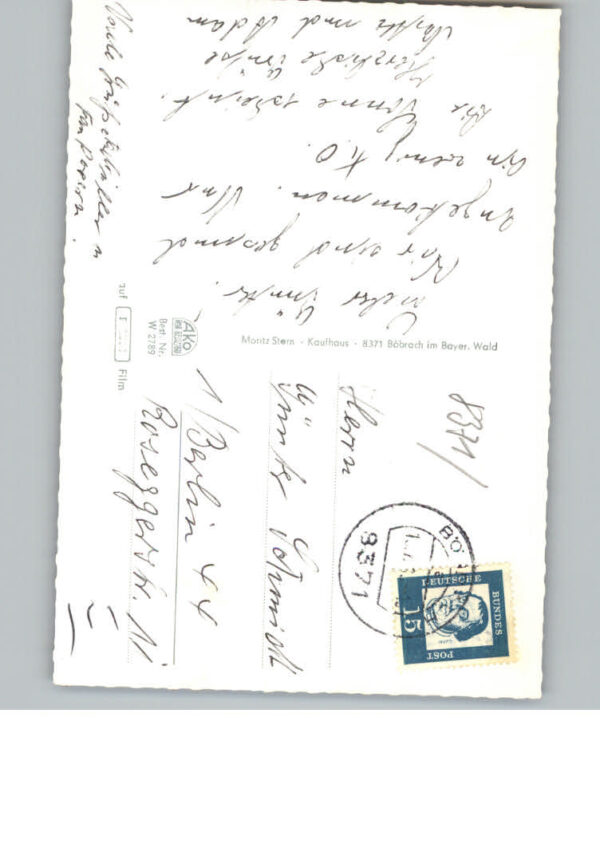 Lieber Günter.
Wir sind gesund
angekommen. Nur
ein wenig k.O.
Die Sonne scheint.
Herzliche Grüße
und Adam
Viele Grüße
Moritz Stern · Kaufhaus · 8371 Böbrach im Bayer. Wald
Ako
Best. Nr.
W 2789
auf
Film
8371/
Herrn
Günter Schmidt
1/Berlin 44
Roseggerstr. 11
8371
DEUTSCHE
BUNDES
POST
15